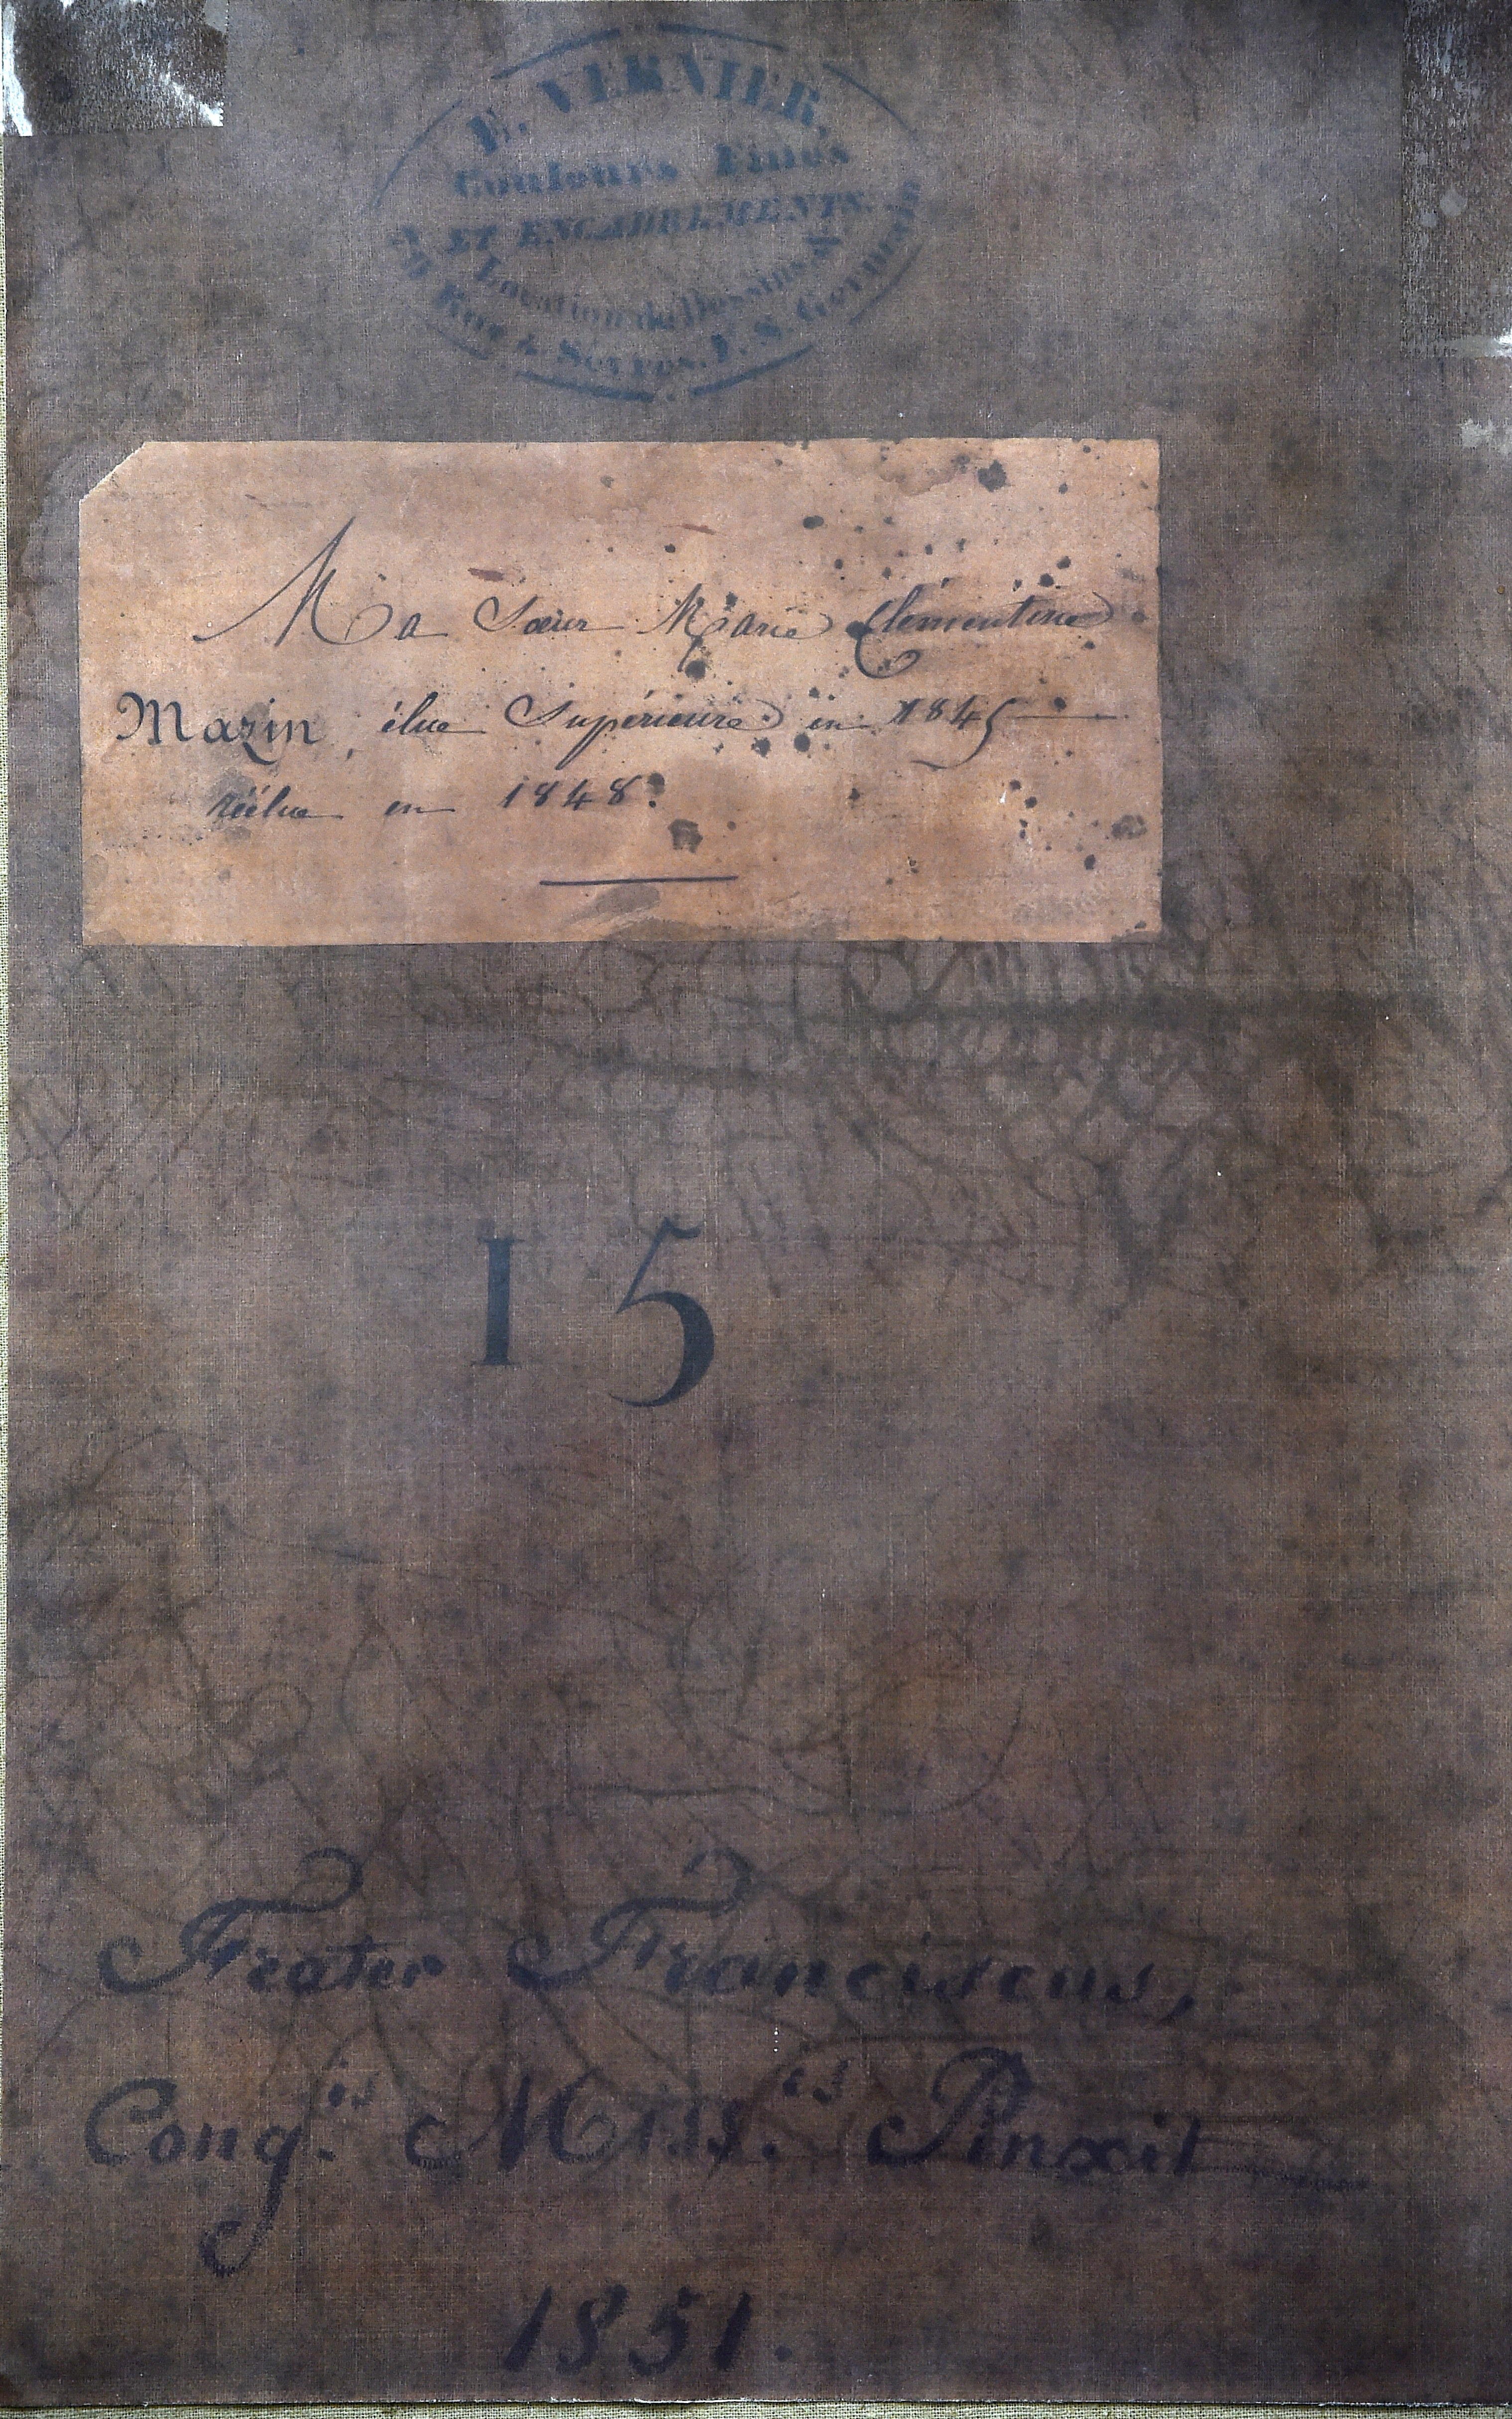 E. VERNIER.
Couleurs Fines
ET ENCADREMENTS.
Location de Dessins &
Rue de Sevres, F. S. Germain
Ma Sœur Marie Clémentine
Mazin, élue Supérieure en 1845
réélue en 1848.
15
Frater Franciscus,
Cong.is Miss.is Pinxit
1851.